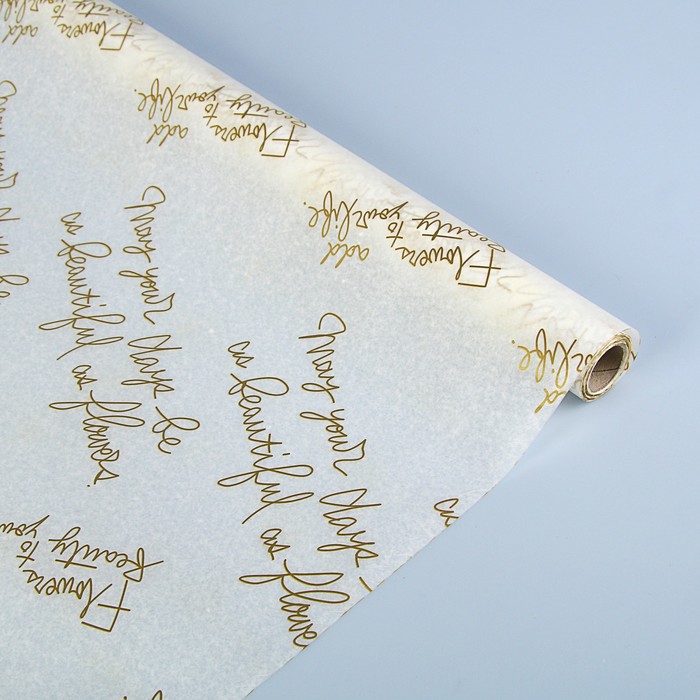 Flowers add
Beauty to
your life.
Flowers add
Beauty to
your life.
Flowers add
Beauty to
your life.
your life.
May your days be
as beautiful
as flowers.
May your days
as beautiful
as flowers
Flowers
Beauty to
as